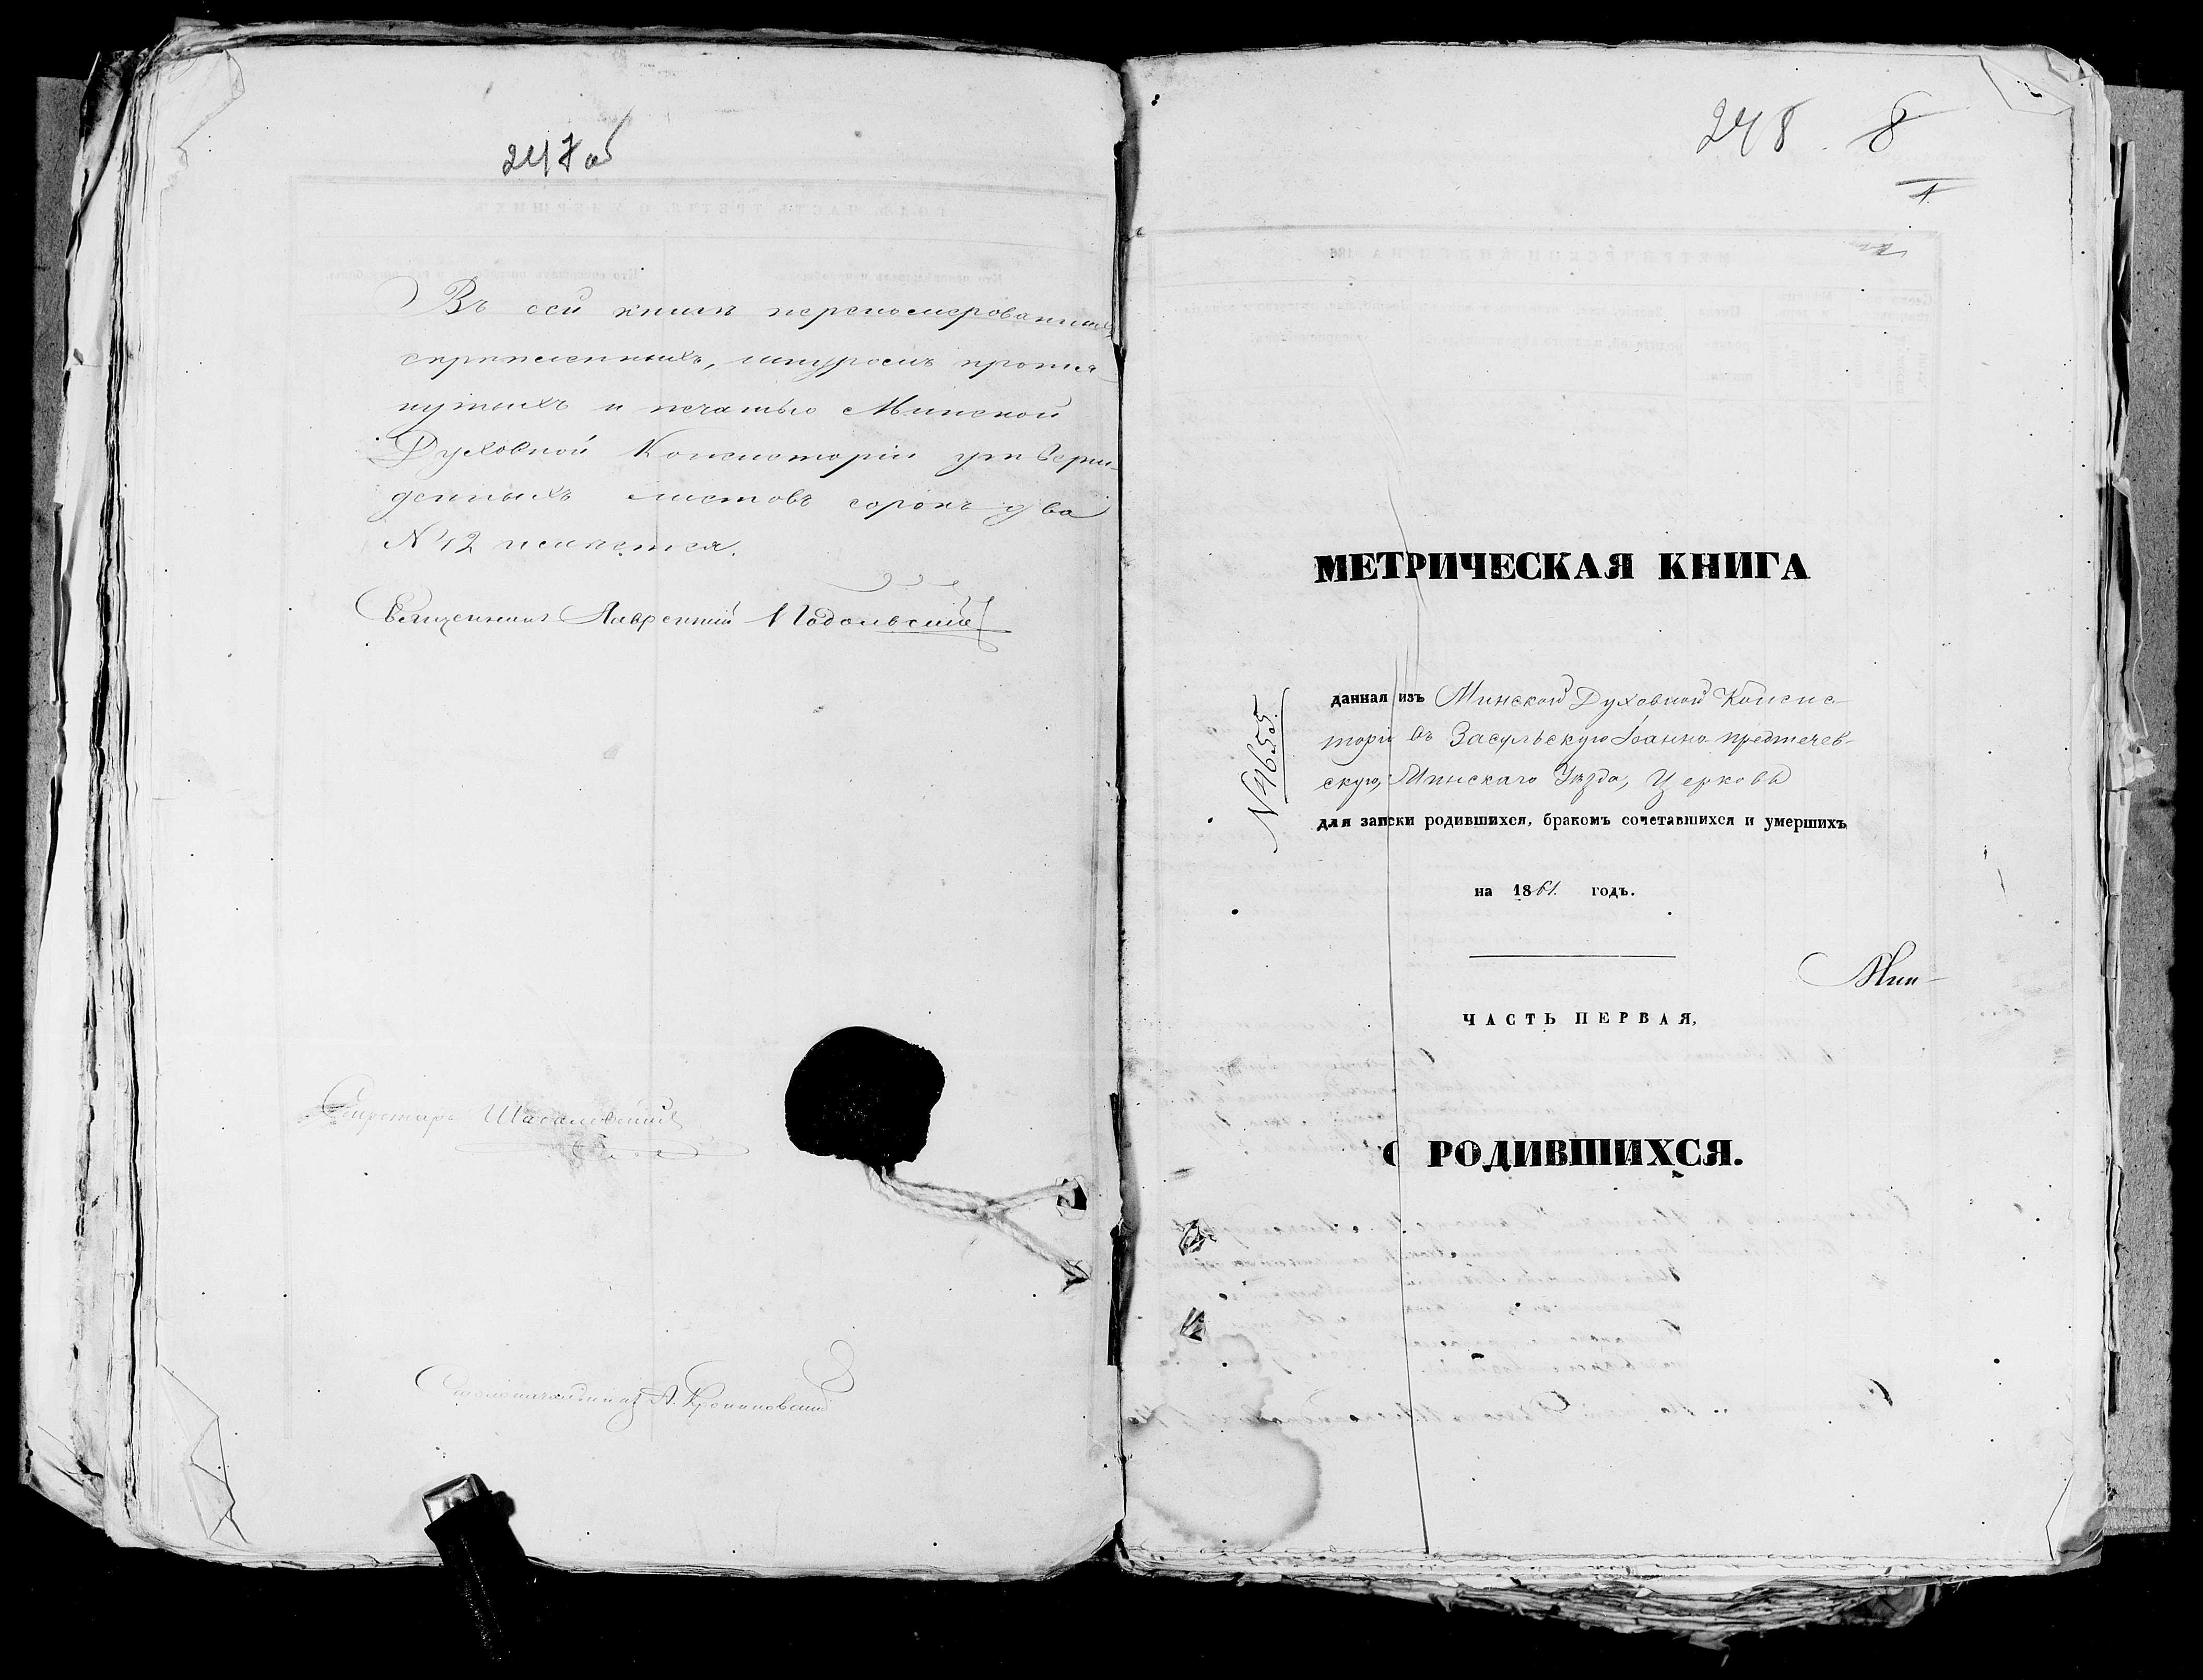 247 об
Въ сей книгѣ переномерованныхъ
скрѣпленныхъ, шнуромъ протя-
нутыхъ и печатью Минской
Духовной Консисторіи утверж-
денныхъ листовъ сорокъ два
N 42 имѣется.
Священникъ Лаврентій Подольскій
Секретарь
Столоначальникъ А.
248. 8
1.
МЕТРИЧЕСКАЯ КНИГА
N 4655.
данная изъ Минской Духовной Консис-
торіи въ Засульскую Іоанно-предтечев-
скую, Минскаго Уѣзда, Церковь
для записки родившихся, бракомъ сочетавшихся и умершихъ
на 1861. годъ.
Мин-
ЧАСТЬ ПЕРВАЯ,
О РОДИВШИХСЯ.